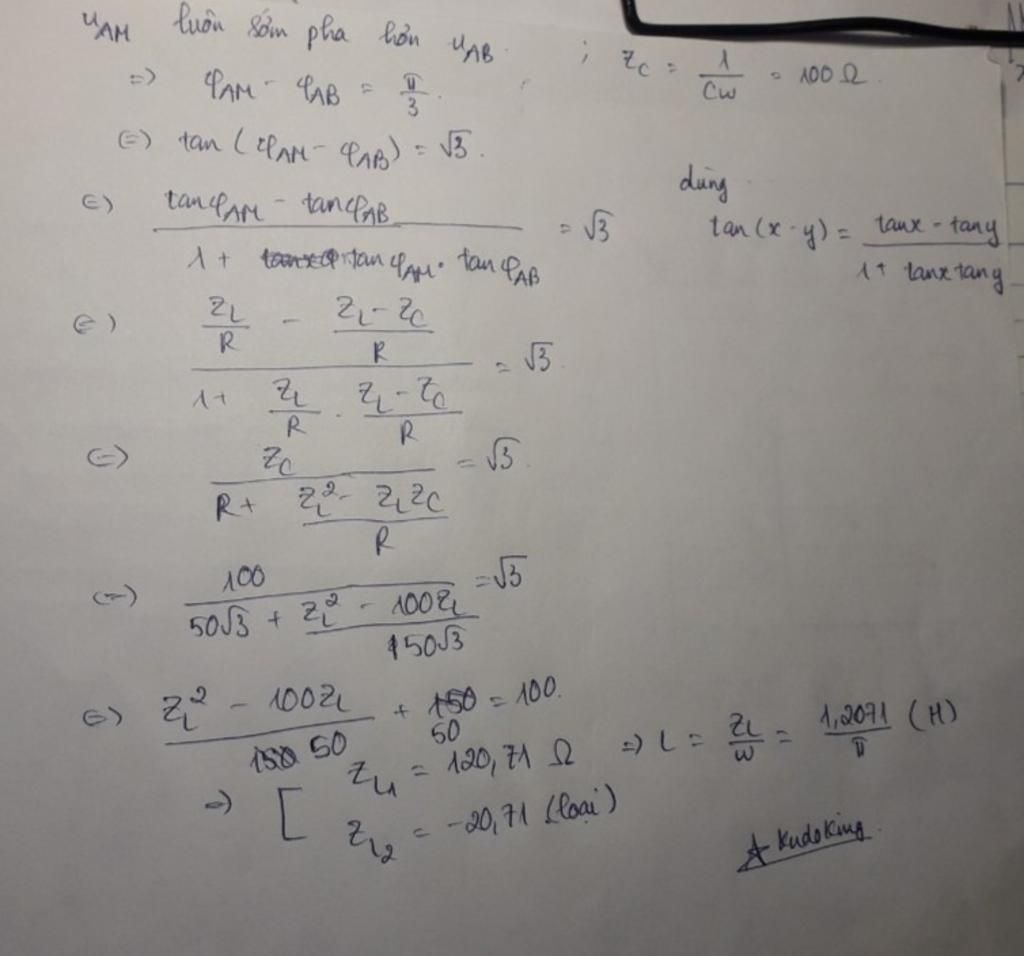 u_AM luôn sớm pha hơn u_AB. ; Z_C = 1/(Cω) = 100 Ω.
=> φ_AM - φ_AB = π/3.
(=) tan (φ_AM - φ_AB) = √3.
dùng
(=) (tanφ_AM - tanφ_AB)/(1 + tanφ_AM . tanφ_AB) = √3
tan(x-y) = (tanx - tany)/(1 + tanx tany)
(=) (Z_L/R - (Z_L - Z_C)/R)/(1 + Z_L/R . (Z_L - Z_C)/R) = √3.
(=) Z_C/(R + (Z_L² - Z_L Z_C)/R) = √3.
(=) 100/(50√3 + (Z_L² - 100Z_L)/(50√3)) = √3
(=) (Z_L² - 100Z_L)/50 + 50 = 100.
=> [ Z_L1 = 120,71 Ω => L = Z_L/ω = 1,2071/π (H)
Z_L2 = -20,71 (loại)
KudoKing.